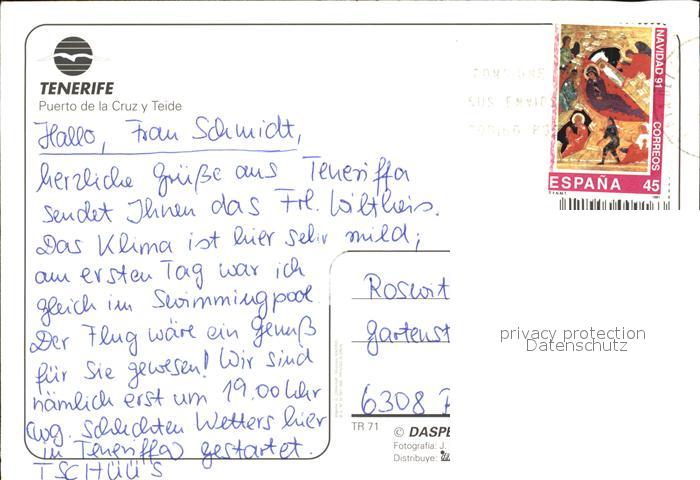 TENERIFE
Puerto de la Cruz y Teide
Hallo, Frau Schmidt,
herzliche Grüße aus Teneriffa
sendet Ihnen das Frl. Wiltheis.
Das Klima ist hier sehr mild;
am ersten Tag war ich
gleich im Swimmingpool.
Der Flug wäre ein Genuß
für Sie gewesen! Wir sind
nämlich erst um 19.00 Uhr
(wg. schlechten Wetters hier
in Teneriffa) gestartet.
TSCHÜÜS
NAVIDAD 91
CORREOS
ESPAÑA 45
SUS ENVIO
CODIGO PO
Roswit
Gartenst
6308
privacy protection
Datenschutz
TR 71
© DASPE
Fotografía: J.
Distribuye: